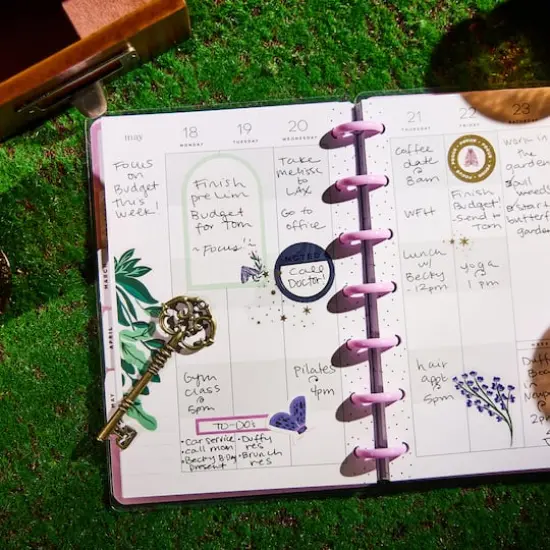 may
Focus
on
Budget
this
week!
MARCH
APRIL
MAY
18
MONDAY
19
TUESDAY
20
WEDNESDAY
Finish
prelim
Budget
for Tom
~ Focus!
Take
melissa
to
LAX
Go to
office
NOTED
Call
Doctor!
Gym
class
@
5pm
Pilates
@
4pm
TO-DOS
• Car service
• call mom
• Becky B Day
present
• Duffy
res
• Brunch
res
21
THURSDAY
22
FRIDAY
23
Coffee
date
@
8am
WFH
Lunch
w/
Becky
-12pm
hair
appt
@
5pm
FOCUS
Finish
Budget!
-send to
Tom
yoga
@
1pm
work in
the
garden
* pull
weeds
* start
butterfly
garden
Duffy
Boat
in
@
2pm